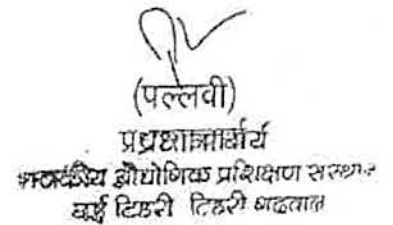 (पल्लवी)
प्रधानाचार्य
राजकीय औद्योगिक प्रशिक्षण संस्थान
नई टिहरी टिहरी गढ़वाल